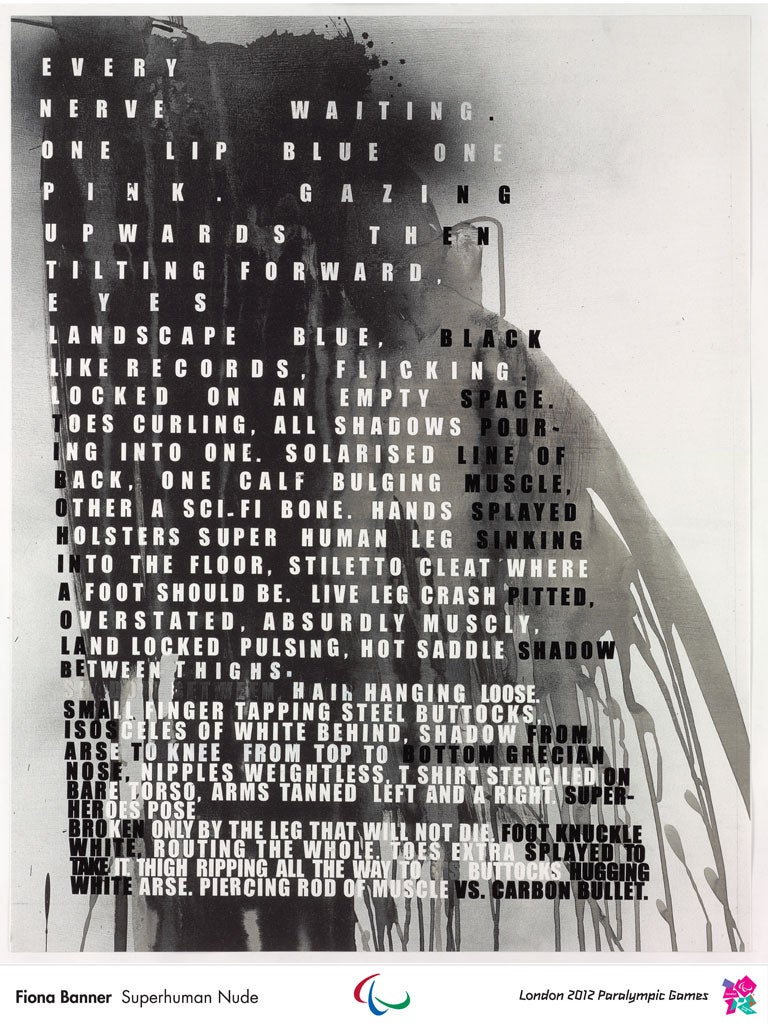 EVERY
NERVE WAITING.
ONE LIP BLUE ONE
PINK. GAZING
UPWARDS THEN
TILTING FORWARD,
EYES
LANDSCAPE BLUE, BLACK
LIKE RECORDS, FLICKING.
LOCKED ON AN EMPTY SPACE.
TOES CURLING, ALL SHADOWS POUR-
ING INTO ONE. SOLARISED LINE OF
BACK, ONE CALF BULGING MUSCLE,
OTHER A SCI-FI BONE. HANDS SPLAYED
HOLSTERS SUPER HUMAN LEG SINKING
INTO THE FLOOR, STILETTO CLEAT WHERE
A FOOT SHOULD BE. LIVE LEG CRASH PITTED,
OVERSTATED, ABSURDLY MUSCLY,
LAND LOCKED PULSING, HOT SADDLE SHADOW
BETWEEN THIGHS.
BETWEEN, HAIR HANGING LOOSE.
SMALL FINGER TAPPING STEEL BUTTOCKS,
ISOSCELES OF WHITE BEHIND, SHADOW FROM
ARSE TO KNEE FROM TOP TO BOTTOM GRECIAN
NOSE, NIPPLES WEIGHTLESS, T SHIRT STENCILED ON
BARE TORSO, ARMS TANNED LEFT AND A RIGHT. SUPER-
HEROES POSE
BROKEN ONLY BY THE LEG THAT WILL NOT DIE. FOOT KNUCKLE
WHITE, ROUTING THE WHOLE. TOES EXTRA SPLAYED TO
TAKE IT THIGH RIPPING ALL THE WAY TO BUTTOCKS HUGGING
WHITE ARSE. PIERCING ROD OF MUSCLE VS. CARBON BULLET.
Fiona Banner Superhuman Nude
London 2012 Paralympic Games